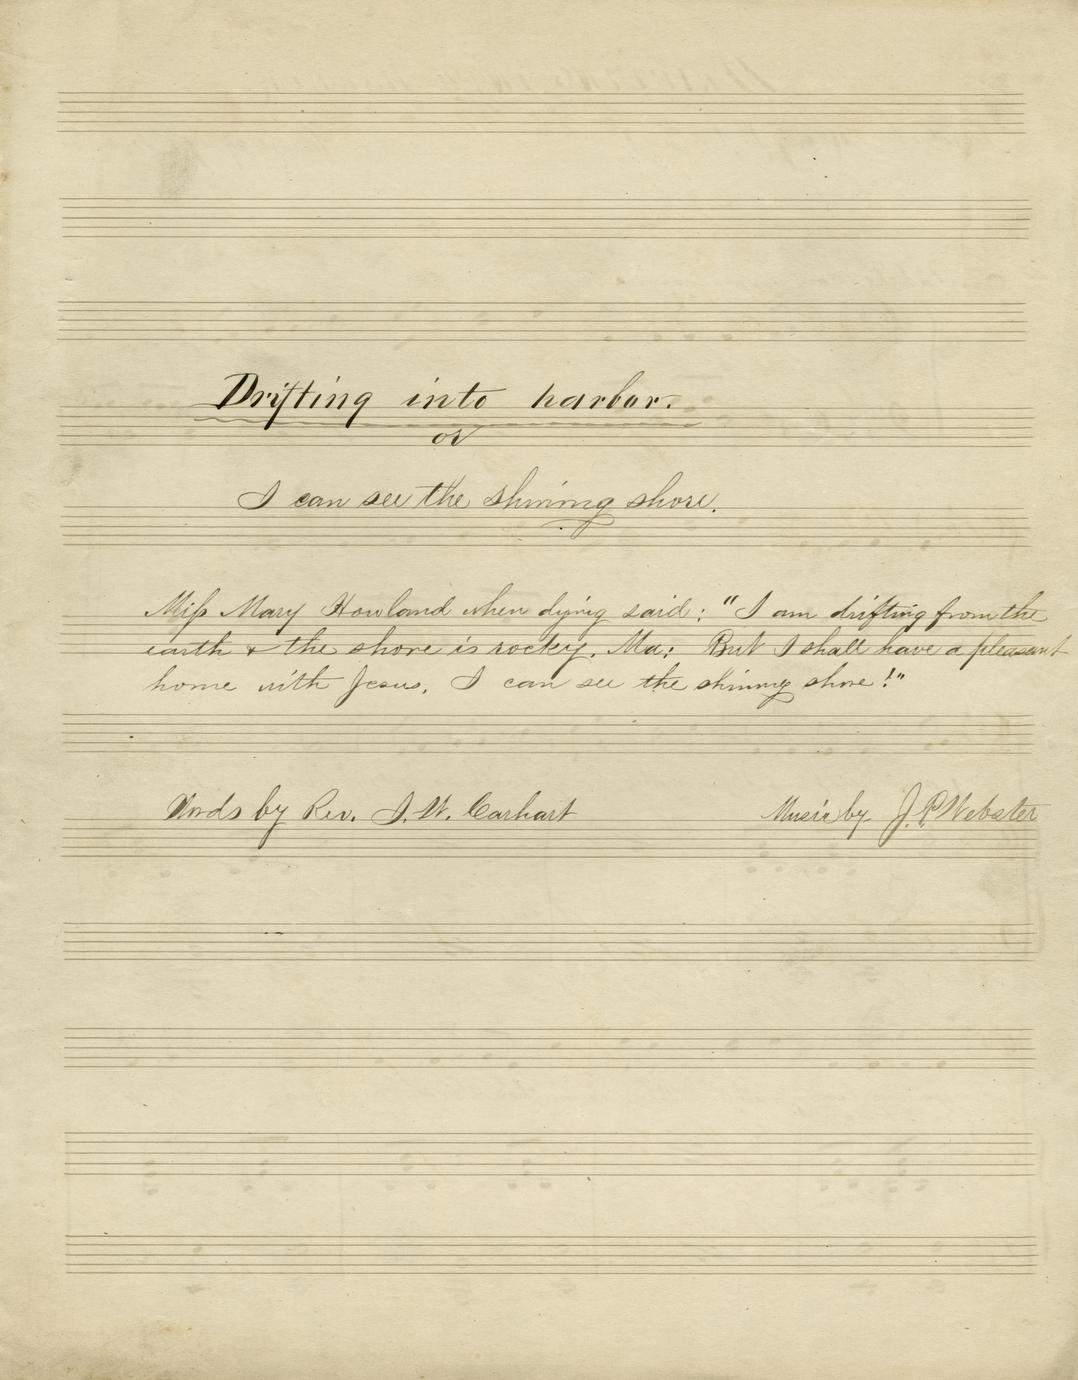 Drifting into harbor.
or
I can see the shining shore.
Miss Mary Howland when dying said: "I am drifting from the
earth & the shore is rocky, Ma: But I shall have a pleasant
home with Jesus, I can see the shining shore!"
Words by Rev. J. W. Carhart Music by J. P. Webster